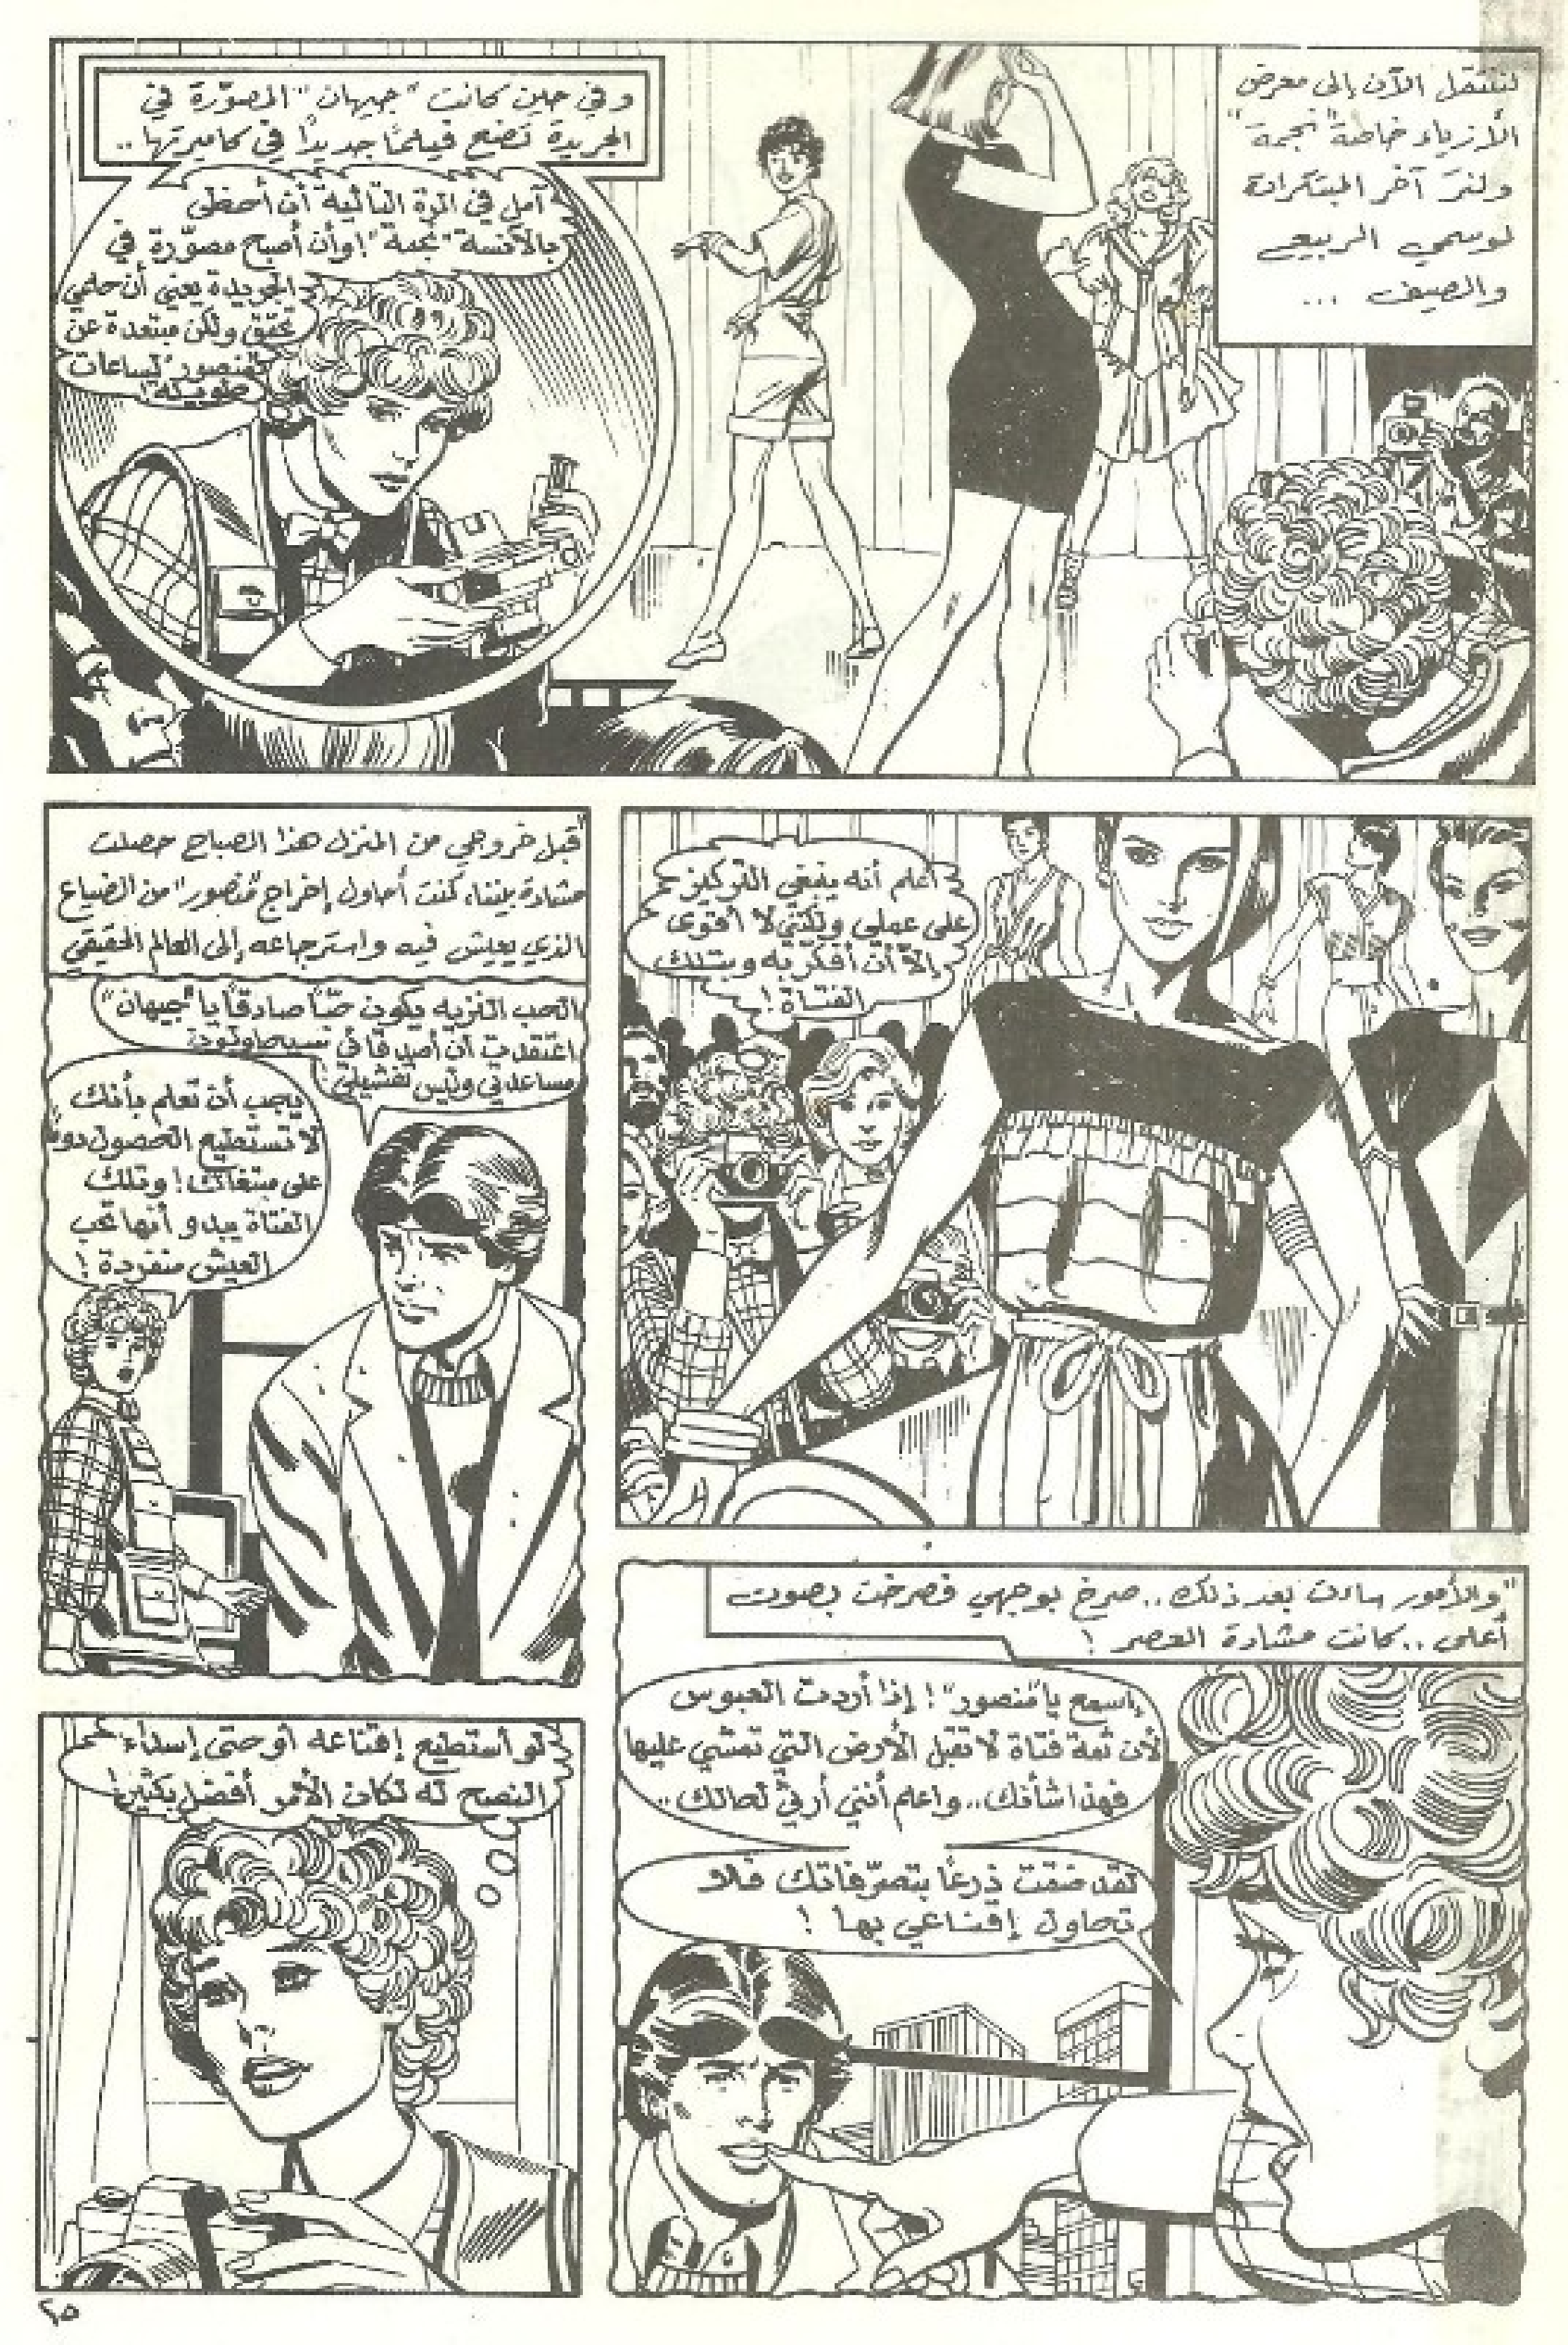 لننتقل الآن إلى معرض
الأزياء خاصة "نجمة"
ولنرَ آخر المبتكرات
لموسمي الربيع
والصيف ...
وفي حين كانت "جيهان" المصوّرة في
الجريدة تضع فيلمًا جديدًا في كاميرتها ..
آمل في المرة التالية أن أحظى
بالآنسة "نجمة"! وأن أصبح مصوّرة في
الجريدة يعني أن حلمي
تحقق ولكن مبتعدة عن
"منصور" لساعات
طويلة
أعلم أنه ينبغي التركيز
على عملي ولكنني لا أقوى
إلا أن أفكر به وبتلك
الفتاة!
"قبل خروجي من المنزل هذا الصباح حصلت
مشادة بيننا، كنت أحاول إخراج "منصور" من الضياع
الذي يعيش فيه واسترجاعه إلى العالم الحقيقي
الحب النزيه يكون حبًا صادقًا يا "جيهان"
اعتقدت أن أصدقائي سيحاولون
مساعدتي وليس تفشيلي!
يجب أن تعلم بأنك
لا تستطيع الحصول دومًا
على مبتغاك! وتلك
الفتاة يبدو أنها تحب
العيش منفردة!
"والأمور ساءت بعد ذلك.. صرخ بوجهي فصرخت بصوت
أعلى.. كانت مشادة العصر!
إسمع يا "منصور"! إذا أردت العبوس
لأن ثمة فتاة لا تقبل الأرض التي تمشي عليها
فهذا شأنك.. واعلم أنني أرثي لحالك..
لقد ضقت ذرعًا بتصرّفاتك فلا
تحاول إقناعي بها!
لو أستطيع إقناعه أو حتى إسداء
النصح له لكان الأمر أفضل بكثير!
٢٥